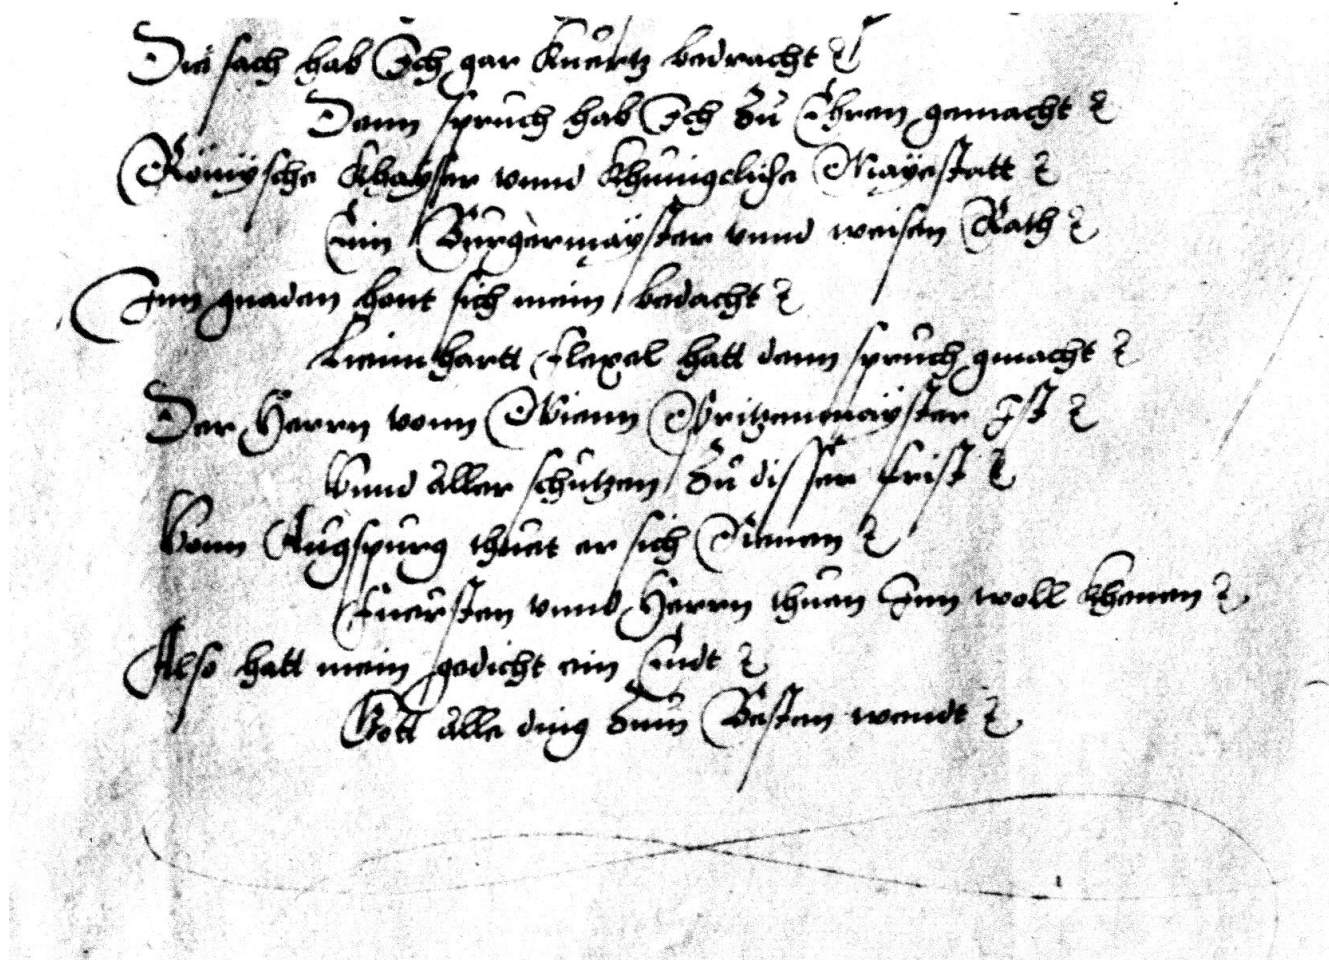 Die sach hab Ich gar Kuertz bedracht
Denn spruch hab Ich Zu Ehren gemacht
Römÿsche Khaÿser vnnd Khunigcliche Maÿestatt
Ein Burgermaÿster vnnd weisen Rath
Inn gnaden hont sich mein bedacht
Lienhartt Flexel hatt denn spruch gmacht
Der Herrn vonn Wienn Britzenmaÿster Ist
Vnnd aller schutzen Zu disser frist
Vonn Augspurg thuet er sich Nenen
Fuersten vnnd Herrn thuen Inn woll khenen
Also hatt mein gedicht ein Endt
Gott alle ding Zum Besten wendt